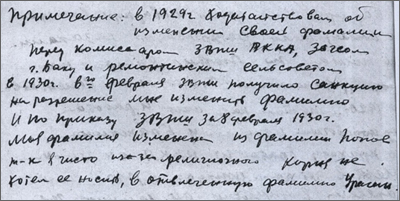 Примечание: в 1929г ходатайствовал об
изменении своей фамилии
перед комиссаром ЗВПШ РККА, Загсом
г. Баку и ремонтинским сельсоветом
в 1930г. февраля ЗВПШ получило санкцию
на разрешение мне изменить фамилию
И по приказу ЗВПШ за 8 февраля 1930г.
Моя фамилия изменена из фамилии Попов
т-к я чисто из-за религиозного корня не
хотел ее носить, в отвлеченную фамилию